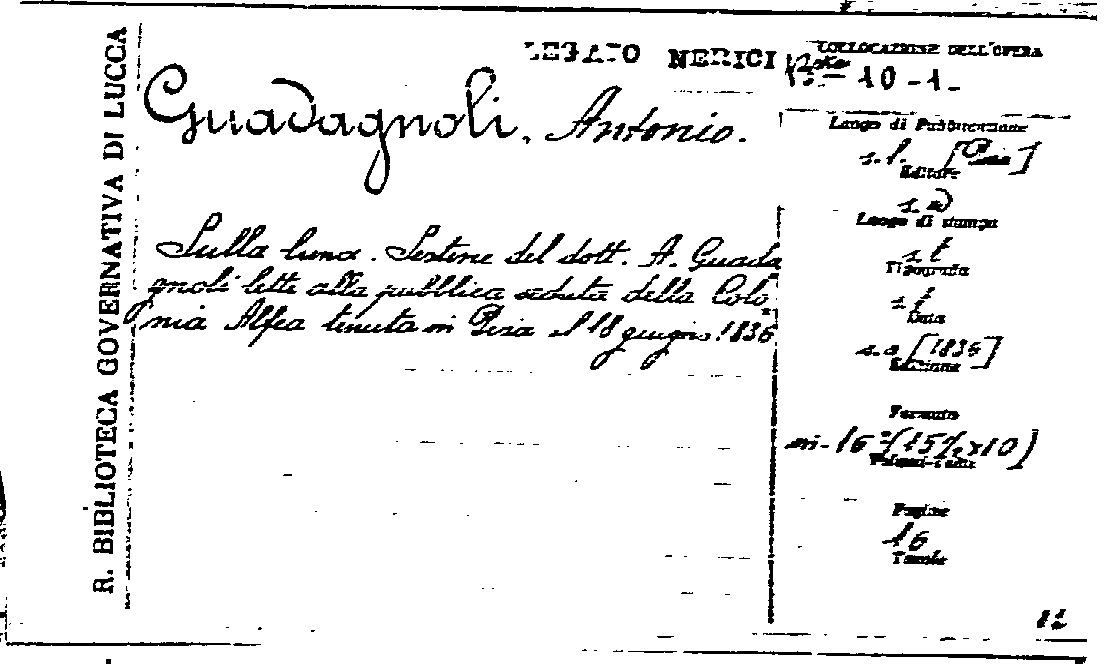 R. BIBLIOTECA GOVERNATIVA DI LUCCA
LEGATO NERICI
COLLOCAZIONE DELL'OPERA
10-1-
Guadagnoli, Antonio.
Luogo di Pubblicazione
s.l. [Pisa]
Editore
s.d
Luogo di stampa
s.t
Tipografia
s.t
Data
s.a [1836]
Edizione
Formato
in-16° (15½x10)
Pagine
16
Tavole
Sulla luna. Sestine del dott. A. Guada
gnoli lette alla pubblica seduta della Colo
nia Alfea tenuta in Pisa il 18 giugno 1836